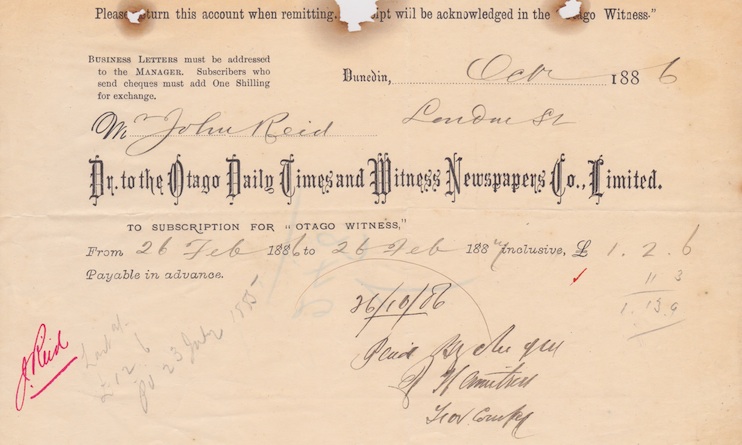 Please return this account when remitting. Receipt will be acknowledged in the "Otago Witness."
BUSINESS LETTERS must be addressed
to the MANAGER. Subscribers who
send cheques must add One Shilling
for exchange.
Dunedin, Octr 1886
Mr John Reid London St
Dr. to the Otago Daily Times and Witness Newspapers Co., Limited.
TO SUBSCRIPTION FOR "OTAGO WITNESS,"
From 26 Feb 1886 to 26 Feb 1887 inclusive, £ 1. 2. 6
Payable in advance.
11 3
1. 13. 9
26/10/86
Paid by cheque
J. Reid
£1 2 6
pd 23 July 1885